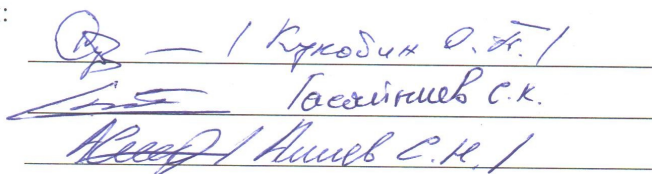 :
— / Кукобин О.П. /
Гасайниев С.К.
/ Алиев С.Н. /